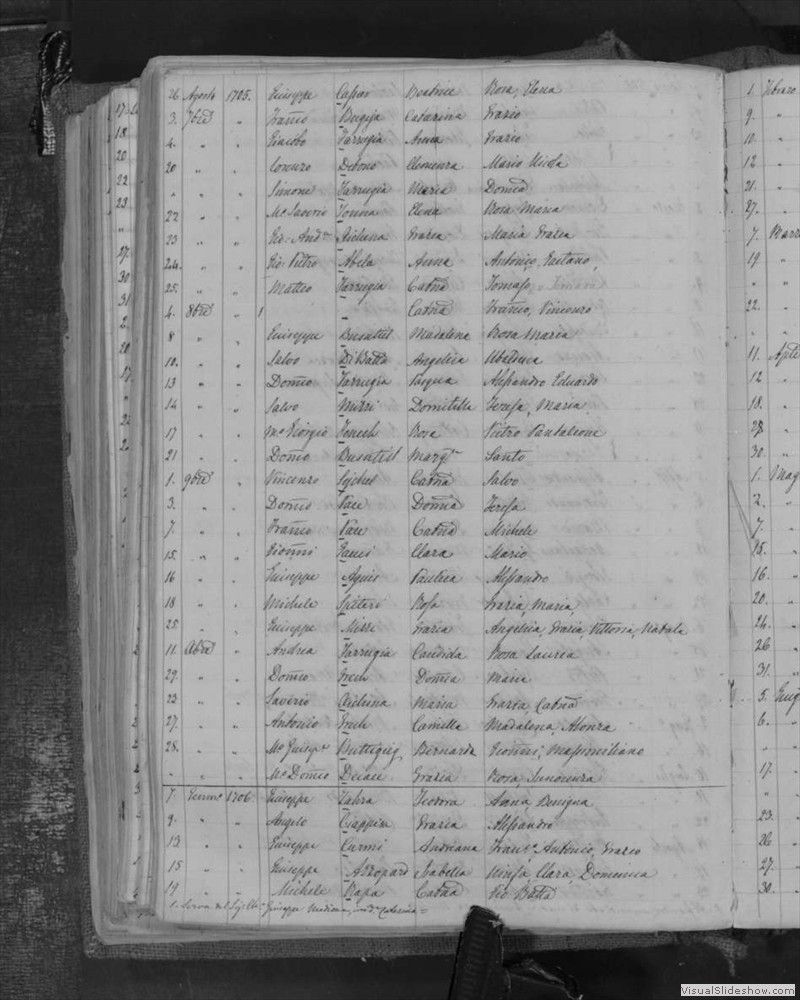 26 Agosto 1705. Giuseppe Caſsar Beatrice Rosa, Elena
3. 7bre " Franco Bugeja Catarina Grazio
4. " " Giacobo Farrugia Anna Grazio
20 " " Lorenzo Debono Clemenza Mario Nicola
" " " Simone Farrugia Maria Domca
22 " " Mo Saverio Tonna Elena Rosa Maria
23 " " Gio. Anda Aichina Grazia Maria Grazia
24. " " Gio Pietro Abela Anna Antonio, Gaetano,
25. " " Matteo Farrugia Catna Tomaſo,
4. 8bre " 1 - Catna Franco, Vincenzo
8 " " Giuseppe Busuttil Madalena Rosa Maria
10. " " Salvo DiBatta Angelica Ubaldesca
13 " " Domco Farrugia Pasqua Aleſsandro Eduardo
14 " " Salvo Mizzi Domitilla Tereſa, Maria
17 " " Mo Giorgio Fenech Rosa Pietro Pantaleone
21 Domco Busuttil Margta Santo
1. 9bre " Vincenzo Sejchel Catna Salvo
3. " " Domco Pace Domca Tereſa
7. " " Franco Pace Catna Michele
15. " " Gionni Gauci Clara Mario
16 " " Giuseppe Agius Paulica Aleſsandro
18 " " Michele Spiteri Roſa Grazia, Maria,
25 " " Giuseppe Mizzi Grazia Angelica, Grazia Vittoria, Natala
11. Xbre " Andrea Farrugia Candida Rosa Laurea
29. " " Domco Grech Domca Maria
23 " " Saverio Aichina Maria Grazia, Catna
27. " " Antonio Grech Camilla Madalena, Alonza
28. " " Mo Giusepe Buttigieg Bernarda Gionni, Maſsimiliano
" " " Mo Domco Grazia Rosa, Innocenza
7. Genno 1706. Giuseppe Zahra Teodora Anna Benigna
9. " " Angelo Ciappira Grazia Aleſsandro
13 " " Giuseppe Curmi Andriana Franco Antonio, Grazio
15 " " Giuseppe Azzopard Isabella Ninfa, Clara, Domenica
19. " " Michele Rapa Catna Gio Batta
1. Giuseppe Caterina =
17
18
20
22
23
"
27
30
31
2
20
17
1. Febraro
9.
10.
12
21.
27.
7. Marzo
19 "
" "
22. "
11. Aple
12 "
18. "
28 "
30. "
1. Mag
2. "
7. "
15. "
16. "
20. "
24. "
26
31. "
5. Giug
6. "
" "
17. "
" "
23. "
26 "
27. "
30. "
VisualSlideshow.com